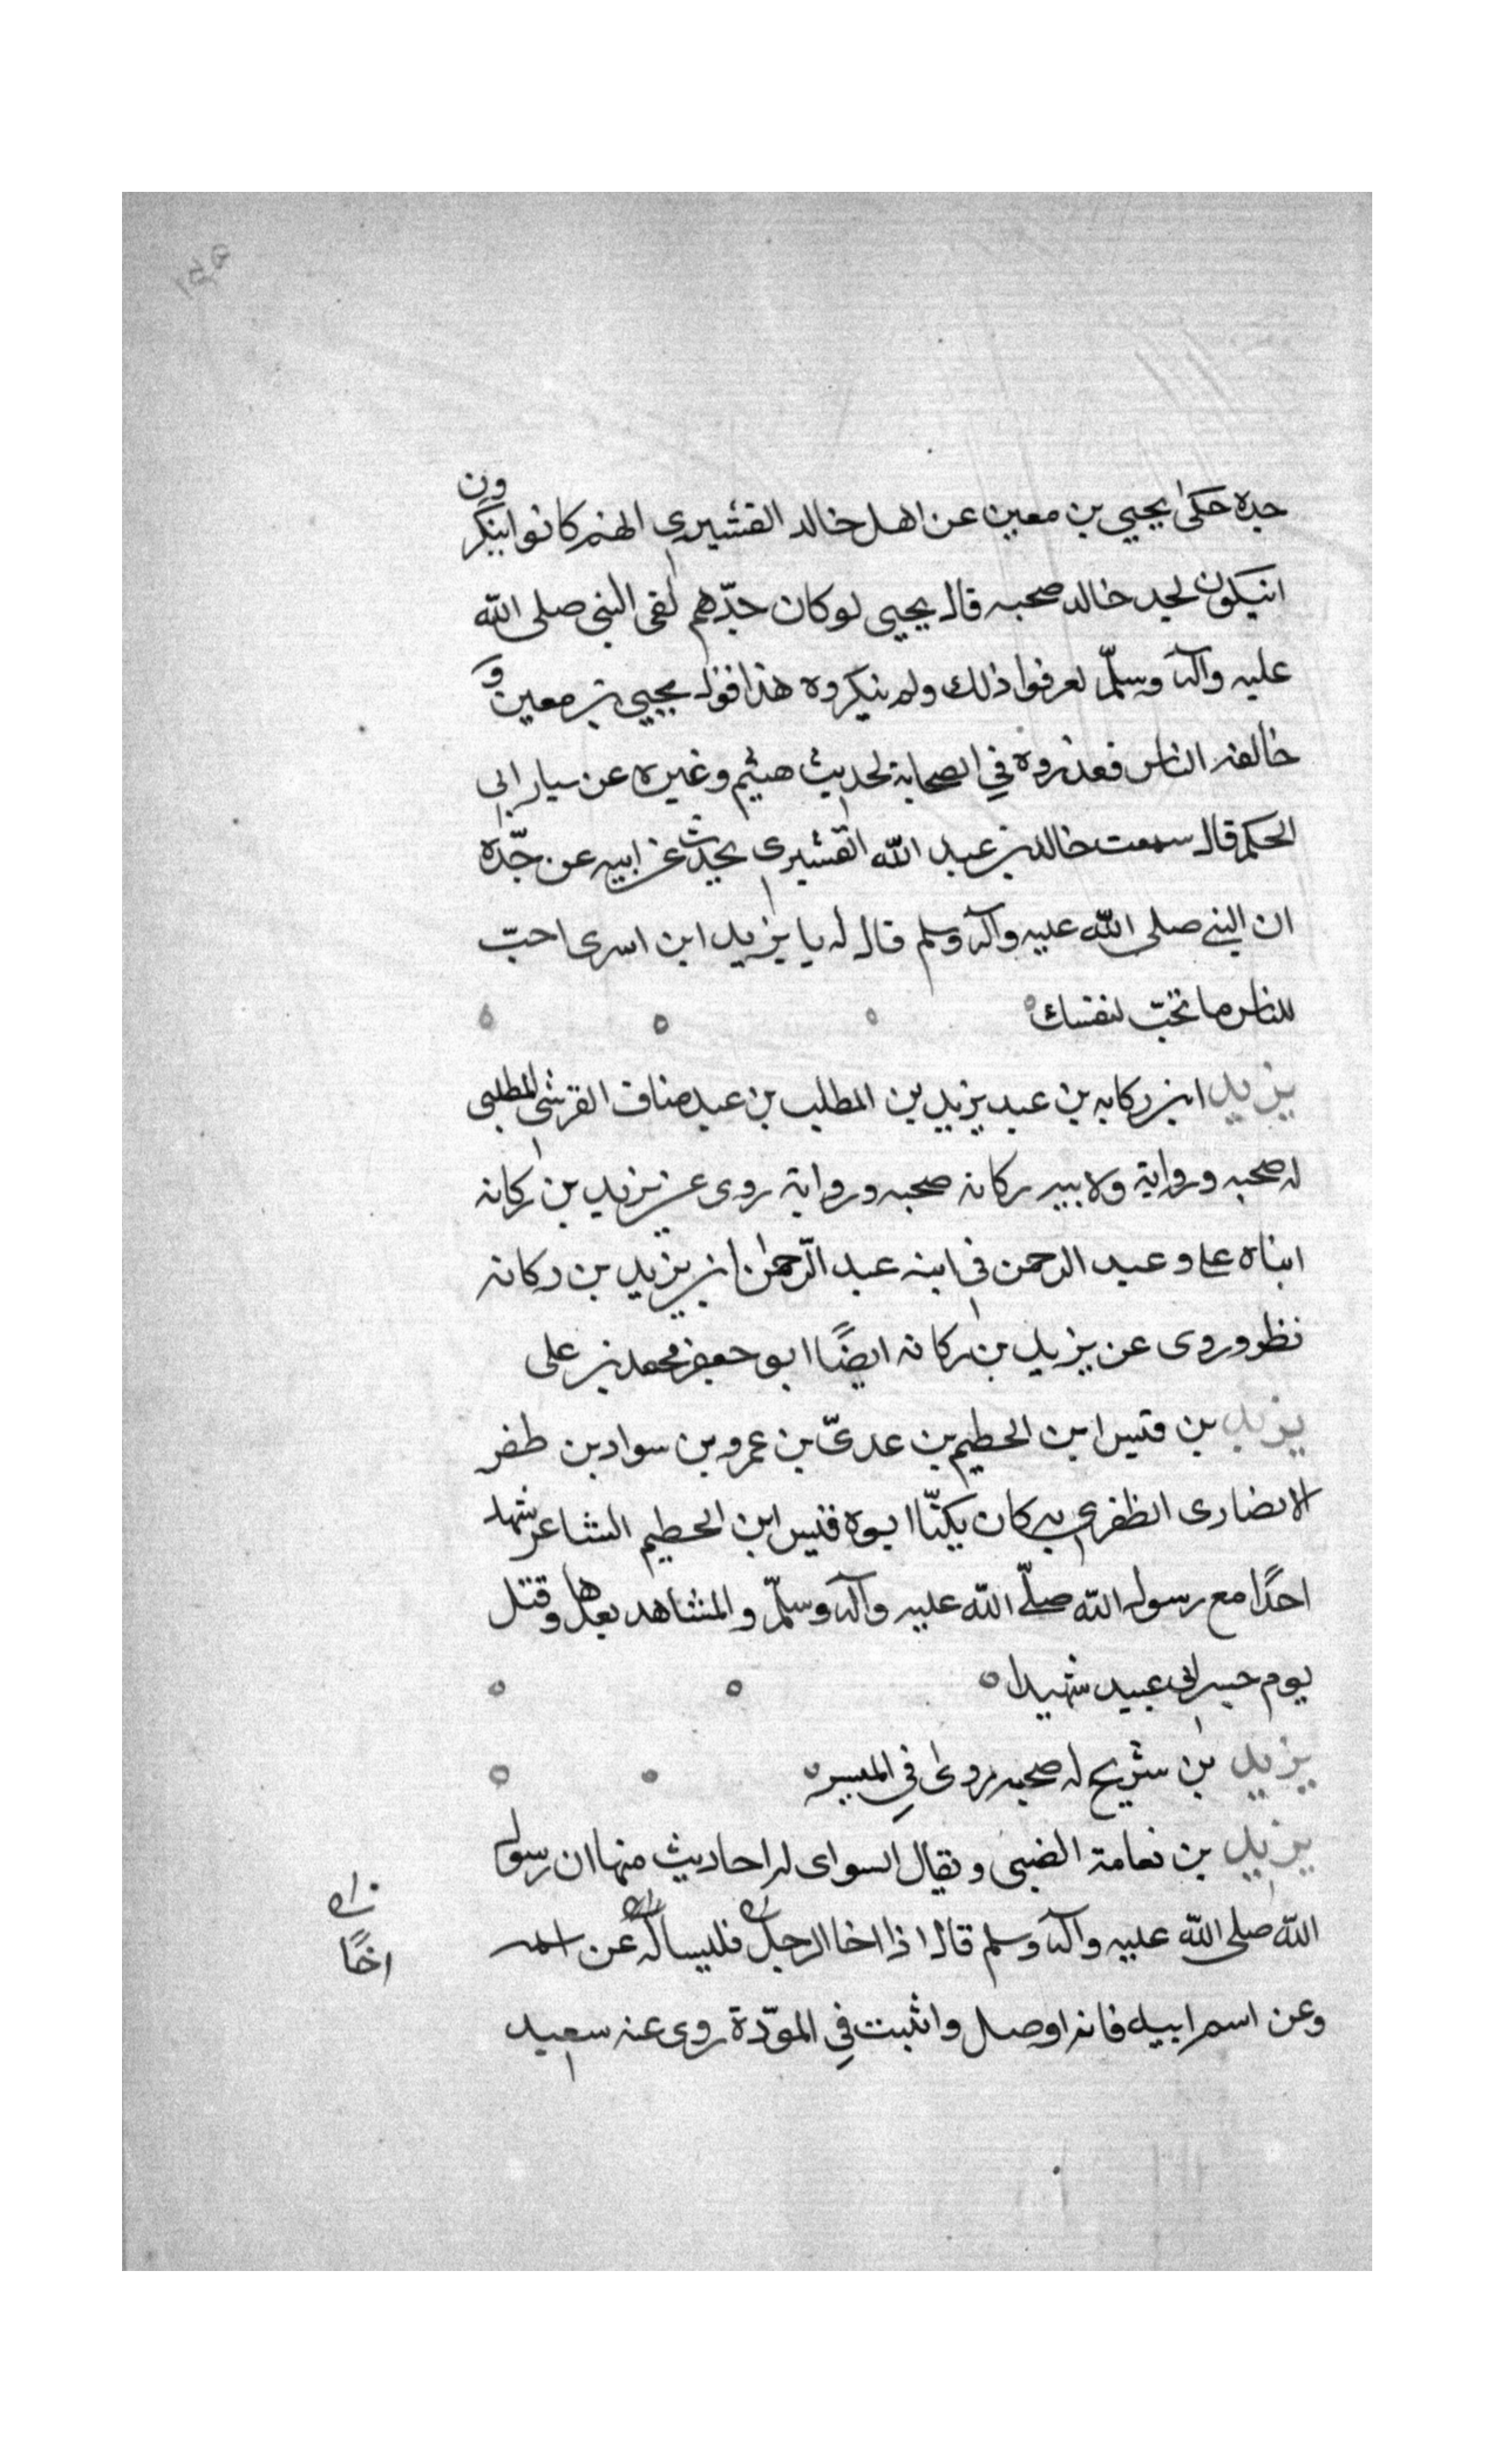 جده حكى يحيي بن معين عن اهل خالد القشيري انهم كانوا ينكرون
ان يكون لجد خالد صحبه قال يحيى لو كان جدّهم لقى النبى صلى الله
عليه وآله وسلّم لعرفوا ذلك ولم ينكروه هذا قول يحيي بن معين و
خالفه الناس فعدوه في الصحابة لحديث هشيم وغيره عن سيار ابى
الحكم قال سمعت خالد بن عبد الله القشيرى يحدث عن ابيه عن جدّه
ان النبي صلى الله عليه وآله وسلم قال له يا يزيد ابن اسرى احبّ
للناس ما تحبّ لنفسك
يزيد ابن ركانه بن عبد يزيد بن المطلب بن عبد مناف القرشى المطلبى
له صحبه ورواية ولابيه ركانه صحبه ورواية روى عن يزيد بن ركانه
ابناه على وعبد الرحمن في ابنه عبد الرّحمن ابن يزيد بن ركانه
نظر وروى عن يزيد بن ركانه ايضًا ابو جعفر محمد بن على
يزيد بن قيس ابن الحطيم بن عدىّ بن عمرو بن سواد بن ظفر
الانصارى الظفرى به كان يكنّا ابوه قيس ابن الحطيم الشاعر شهد
احدًا مع رسول الله صلّى الله عليه وآله وسلّم والمشاهد بعدها وقتل
يوم جسر ابى عبيد شهيدا
يزيد بن شريح له صحبه روى في الميسر
يزيد بن نعامة الضبى ويقال السواى له احاديث منها ان رسول
الله صلى الله عليه وآله وسلم قال اذا اخا الرجل فليساله عن اسمه
اخًا
وعن اسم ابيه فانه اوصل واثبت في المودّة روى عنه سعيد